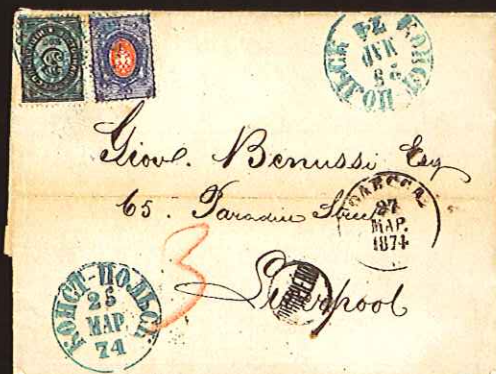 КОНСТ-ПОЛЬСК
25
МАР
74
Giovl. Benussi Esq
65. Paradise Street
ОДЕССА
27
МАР.
1874
Liverpool
3
КОНСТ-ПОЛЬСК
25
МАР
74